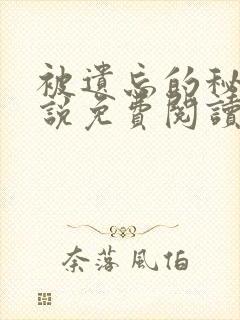 被遺忘的秘
說免費閱讀
奈落風怕